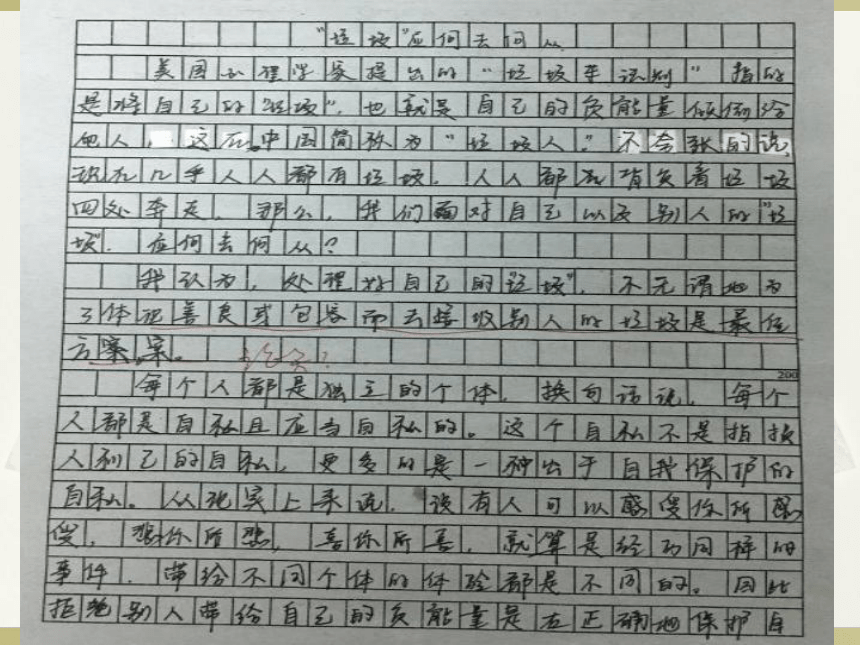 “垃圾”应何去何从
美国心理学家提出的“垃圾车法则”指的
是将自己的“垃圾”，也就是自己的负能量倾倒给
他人，这在中国简称为“垃圾人”。不夸张的说，
现在几乎人人都有垃圾，人人都在背负着垃圾
四处奔走，那么，我们面对自己以及别人的“垃
圾”，应何去何从？
我认为，处理好自己的“垃圾”，不无谓地为
了体现善良或包容而去接收别人的垃圾是最佳
方案。
论点？
200
每个人都是独立的个体，换句话说，每个
人都是自私且应当自私的。这个自私不是指损
人利己的自私，更多的是一种出于自我保护的
自私。从现实上来说，没有人可以感受你所感
受，悲你所悲，喜你所喜，就算是经历同样的
事件，带给不同个体的体验都是不同的。因此
拒绝别人带给自己的负能量是在正确地保护自